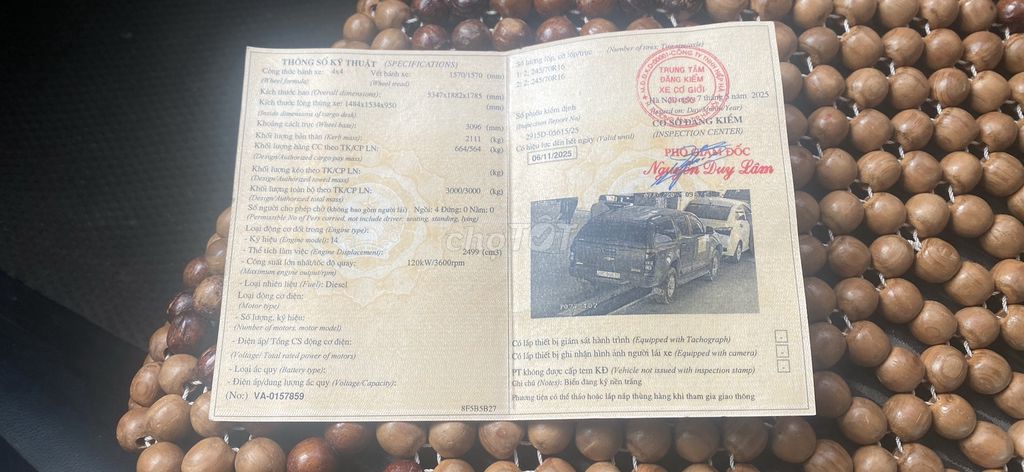 THÔNG SỐ KỸ THUẬT (SPECIFICATIONS)
Công thức bánh xe: 4x4 Vết bánh xe: 1570/1570 (mm)
(Wheel formula) (Wheel tread)
Kích thước bao (Overall dimensions): 5347x1882x1785 (mm)
Kích thước lòng thùng xe: 1484x1534x950 (mm)
(Inside dimensions of cargo deck)
Khoảng cách trục (Wheel base): 3096 (mm)
Khối lượng bản thân (Kerb mass): 2111 (kg)
Khối lượng hàng CC theo TK/CP LN: 664/564 (kg)
(Design/Authorized cargo pay mass)
Khối lượng kéo theo TK/CP LN: (kg)
(Design/Authorized towed mass)
Khối lượng toàn bộ theo TK/CP LN: 3000/3000 (kg)
(Design/Authorized total mass)
Số người cho phép chở (không bao gồm người lái) Ngồi: 4 Đứng: 0 Nằm: 0
(Permissible No of Pers carried, not include driver: seating, standing, lying)
Loại động cơ đốt trong (Engine type):
- Ký hiệu (Engine model): I4
- Thể tích làm việc (Engine Displacement): 2499 (cm3)
- Công suất lớn nhất/tốc độ quay: 120kW/3600rpm
(Maximum engine output/rpm)
- Loại nhiên liệu (Fuel): Diesel
Loại động cơ điện:
(Motor type)
- Số lượng, ký hiệu:
(Number of motors, motor model)
- Điện áp/ Tổng CS động cơ điện:
(Voltage/ Total rated power of motors)
- Loại ắc quy (Battery type):
- Điện áp/dung lượng ắc quy (Voltage/Capacity):
(No:) VA-0157859
8F5B5B27
Số lượng lốp, cỡ lốp/trục (Number of tires; Tire size/axle)
1: 2; 245/70R16
2: 2; 245/70R16
TRUNG TÂM
ĐĂNG KIỂM
XE CƠ GIỚI
Số phiếu kiểm định
(Inspection Report No)
2915D-03615/25
Có hiệu lực đến hết ngày (Valid until)
06/11/2025
Hà Nội, ngày 7 tháng 5 năm 2025
(Issued on: Day/Month/Year)
CƠ SỞ ĐĂNG KIỂM
(INSPECTION CENTER)
PHÓ GIÁM ĐỐC
Nguyễn Duy Lâm
choTỐT
Có lắp thiết bị giám sát hành trình (Equipped with Tachograph)
Có lắp thiết bị ghi nhận hình ảnh người lái xe (Equipped with camera)
PT không được cấp tem KĐ (Vehicle not issued with inspection stamp)
Ghi chú (Notes): Biển đăng ký nền trắng
Phương tiện có thể tháo hoặc lắp nắp thùng hàng khi tham gia giao thông